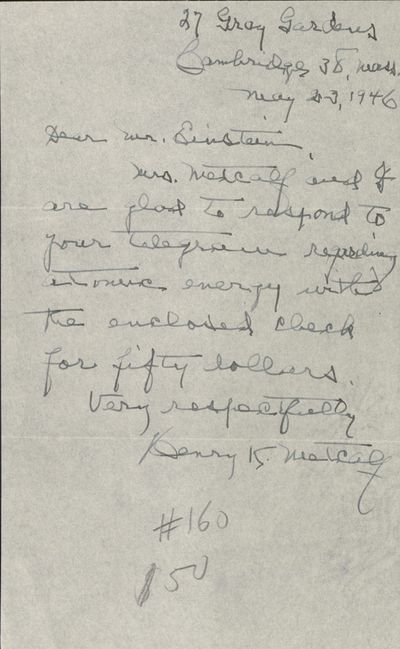 27 Gray Gardens
Cambridge 38, Mass.
May 23, 1946
Dear Mr. Einstein,
Mrs. Metcalf and I
are glad to respond to
your telegram regarding
atomic energy with
the enclosed check
for fifty dollars.
Very respectfully
Henry K. Metcalf
#160
$50